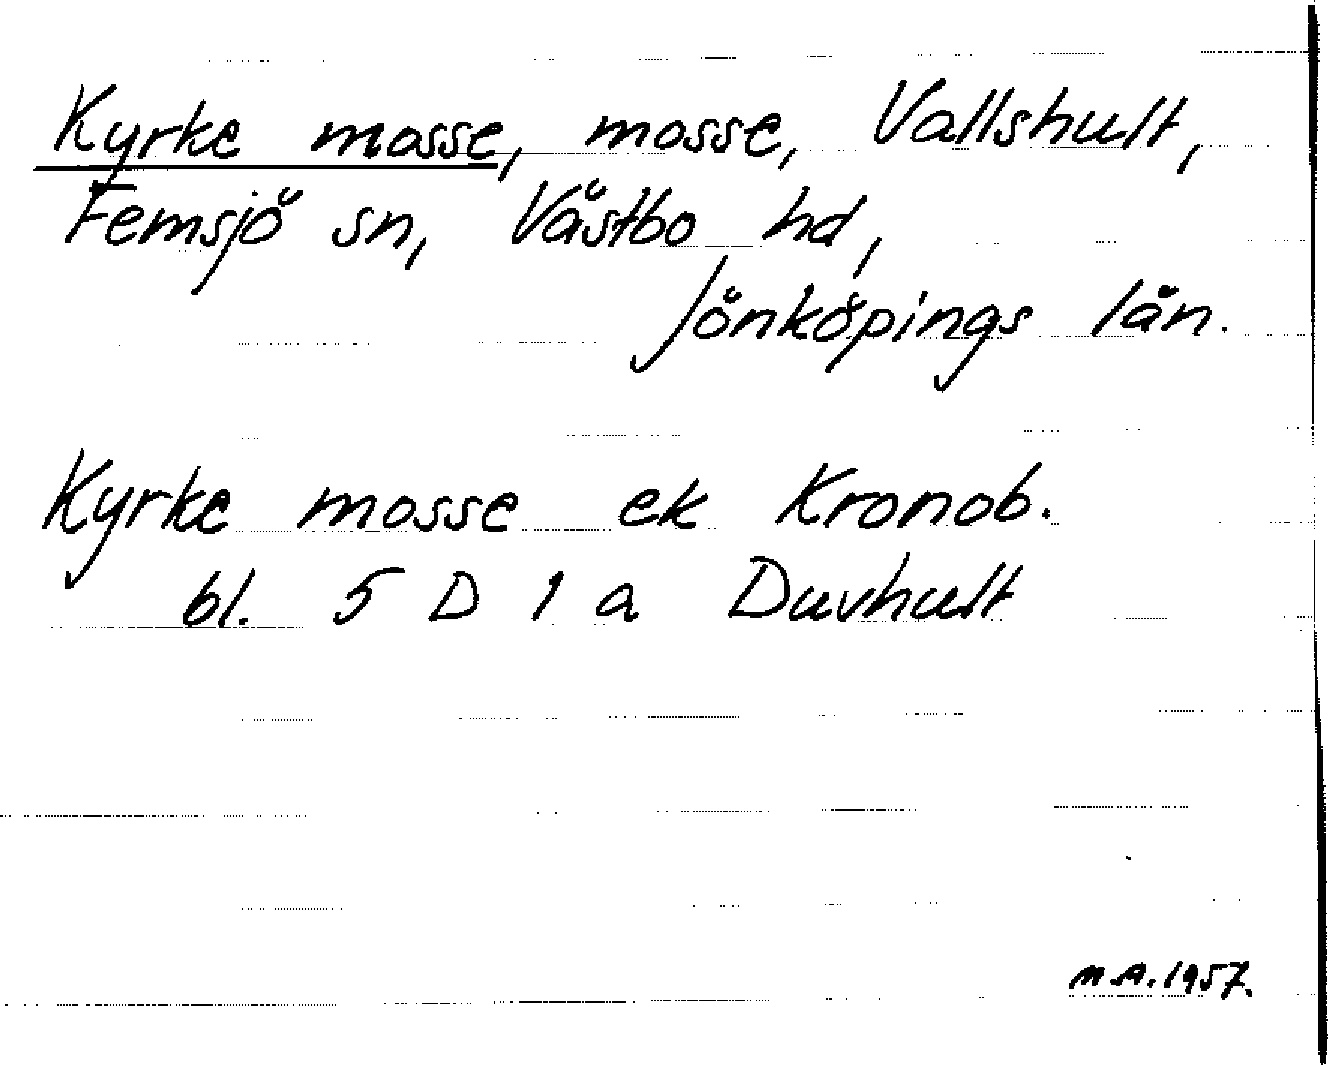 Kyrke mosse, mosse, Vallshult,
Femsjö sn, Västbo hd,
Jönköpings län.
Kyrke mosse ek Kronob.
bl. 5 D 1 a Duvhult
M.A. 1957.